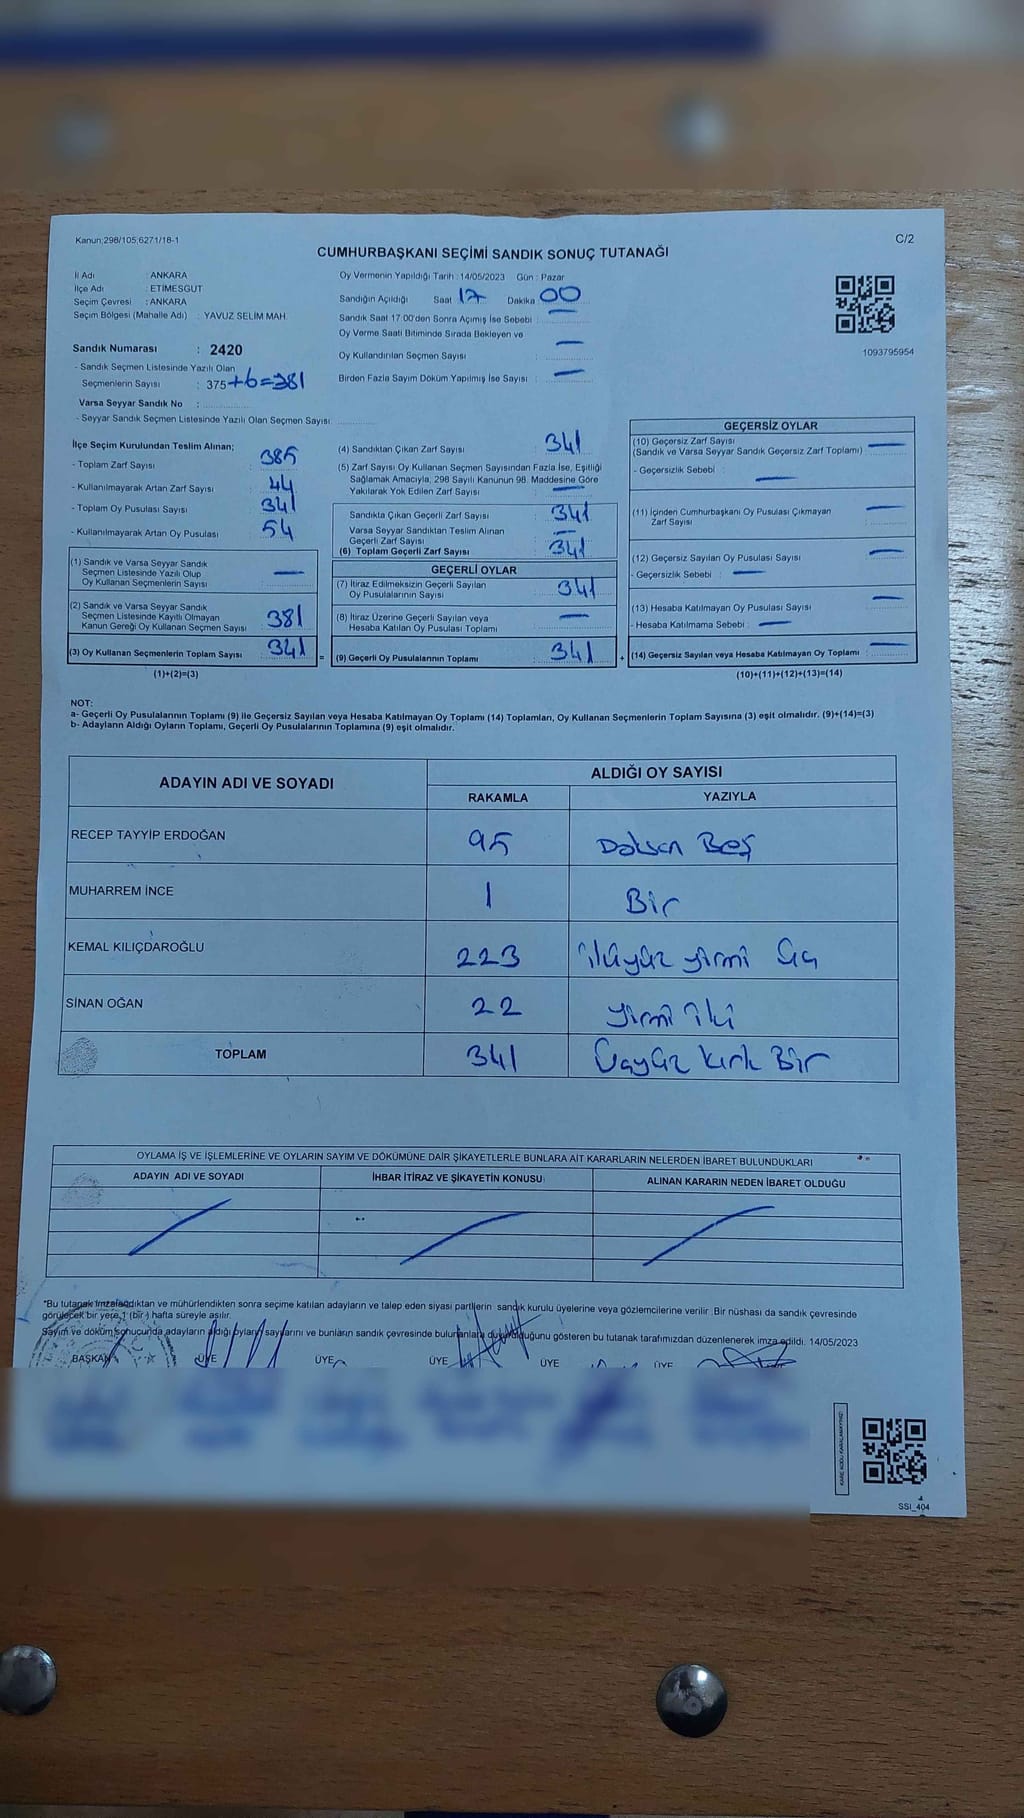 Kanun;298/105;6271/18-1
C/2
CUMHURBAŞKANI SEÇİMİ SANDIK SONUÇ TUTANAĞI
İl Adı : ANKARA
İlçe Adı : ETİMESGUT
Seçim Çevresi : ANKARA
Seçim Bölgesi (Mahalle Adı) : YAVUZ SELİM MAH.
Oy Vermenin Yapıldığı Tarih : 14/05/2023 Gün : Pazar
Sandığın Açıldığı Saat 17 Dakika 00
Sandık Saat 17:00'den Sonra Açımış İse Sebebi : —
Oy Verme Saati Bitiminde Sırada Bekleyen ve
Oy Kullandırılan Seçmen Sayısı : —
Birden Fazla Sayım Döküm Yapılmış İse Sayısı : —
1093795954
Sandık Numarası : 2420
- Sandık Seçmen Listesinde Yazılı Olan
Seçmenlerin Sayısı : 375+6=381
Varsa Seyyar Sandık No :
- Seyyar Sandık Seçmen Listesinde Yazılı Olan Seçmen Sayısı:
İlçe Seçim Kurulundan Teslim Alınan;
- Toplam Zarf Sayısı : 385
- Kullanılmayarak Artan Zarf Sayısı : 44
- Toplam Oy Pusulası Sayısı : 341
- Kullanılmayarak Artan Oy Pusulası : 54
(1) Sandık ve Varsa Seyyar Sandık
Seçmen Listesinde Yazılı Olup
Oy Kullanan Seçmenlerin Sayısı : —
(2) Sandık ve Varsa Seyyar Sandık
Seçmen Listesinde Kayıtlı Olmayan
Kanun Gereği Oy Kullanan Seçmen Sayısı : 381
(3) Oy Kullanan Seçmenlerin Toplam Sayısı : 341 =
(1)+(2)=(3)
(4) Sandıktan Çıkan Zarf Sayısı : 341
(5) Zarf Sayısı Oy Kullanan Seçmen Sayısından Fazla İse, Eşitliği
Sağlamak Amacıyla, 298 Sayılı Kanunun 98. Maddesine Göre
Yakılarak Yok Edilen Zarf Sayısı : —
Sandıkta Çıkan Geçerli Zarf Sayısı : 341
Varsa Seyyar Sandıktan Teslim Alınan
Geçerli Zarf Sayısı : —
(6) Toplam Geçerli Zarf Sayısı : 341
GEÇERLİ OYLAR
(7) İtiraz Edilmeksizin Geçerli Sayılan
Oy Pusulalarının Sayısı : 341
(8) İtiraz Üzerine Geçerli Sayılan veya
Hesaba Katılan Oy Pusulası Toplamı : —
(9) Geçerli Oy Pusulalarının Toplamı : 341 +
GEÇERSİZ OYLAR
(10) Geçersiz Zarf Sayısı
(Sandık ve Varsa Seyyar Sandık Geçersiz Zarf Toplamı) : —
- Geçersizlik Sebebi : —
(11) İçinden Cumhurbaşkanı Oy Pusulası Çıkmayan
Zarf Sayısı : —
(12) Geçersiz Sayılan Oy Pusulası Sayısı : —
- Geçersizlik Sebebi : —
(13) Hesaba Katılmayan Oy Pusulası Sayısı : —
- Hesaba Katılmama Sebebi : —
(14) Geçersiz Sayılan veya Hesaba Katılmayan Oy Toplamı : —
(10)+(11)+(12)+(13)=(14)
NOT:
a- Geçerli Oy Pusulalarının Toplamı (9) ile Geçersiz Sayılan veya Hesaba Katılmayan Oy Toplamı (14) Toplamları, Oy Kullanan Seçmenlerin Toplam Sayısına (3) eşit olmalıdır. (9)+(14)=(3)
b- Adayların Aldığı Oyların Toplamı, Geçerli Oy Pusulalarının Toplamına (9) eşit olmalıdır.
ADAYIN ADI VE SOYADI
ALDIĞI OY SAYISI
RAKAMLA YAZIYLA
RECEP TAYYİP ERDOĞAN 95 Doksan Beş
MUHARREM İNCE 1 Bir
KEMAL KILIÇDAROĞLU 223 ikiyüz yirmi üç
SİNAN OĞAN 22 yirmi iki
TOPLAM 341 Üçyüz kırk Bir
OYLAMA İŞ VE İŞLEMLERİNE VE OYLARIN SAYIM VE DÖKÜMÜNE DAİR ŞİKAYETLERLE BUNLARA AİT KARARLARIN NELERDEN İBARET BULUNDUKLARI
ADAYIN ADI VE SOYADI İHBAR İTİRAZ VE ŞİKAYETİN KONUSU ALINAN KARARIN NEDEN İBARET OLDUĞU
*Bu tutanak imzalandıktan ve mühürlendikten sonra seçime katılan adayların ve talep eden siyasi partilerin sandık kurulu üyelerine veya gözlemcilerine verilir. Bir nüshası da sandık çevresinde
görülecek bir yere 1 (bir) hafta süreyle asılır.
Sayım ve döküm sonucunda adayların aldığı oyların sayılarını ve bunların sandık çevresinde bulunanlara duyurulduğunu gösteren bu tutanak tarafımızdan düzenlenerek imza edildi. 14/05/2023
BAŞKAN ÜYE ÜYE ÜYE ÜYE ÜYE
KARE KODU KARALAMAYINIZ!
SSI_404